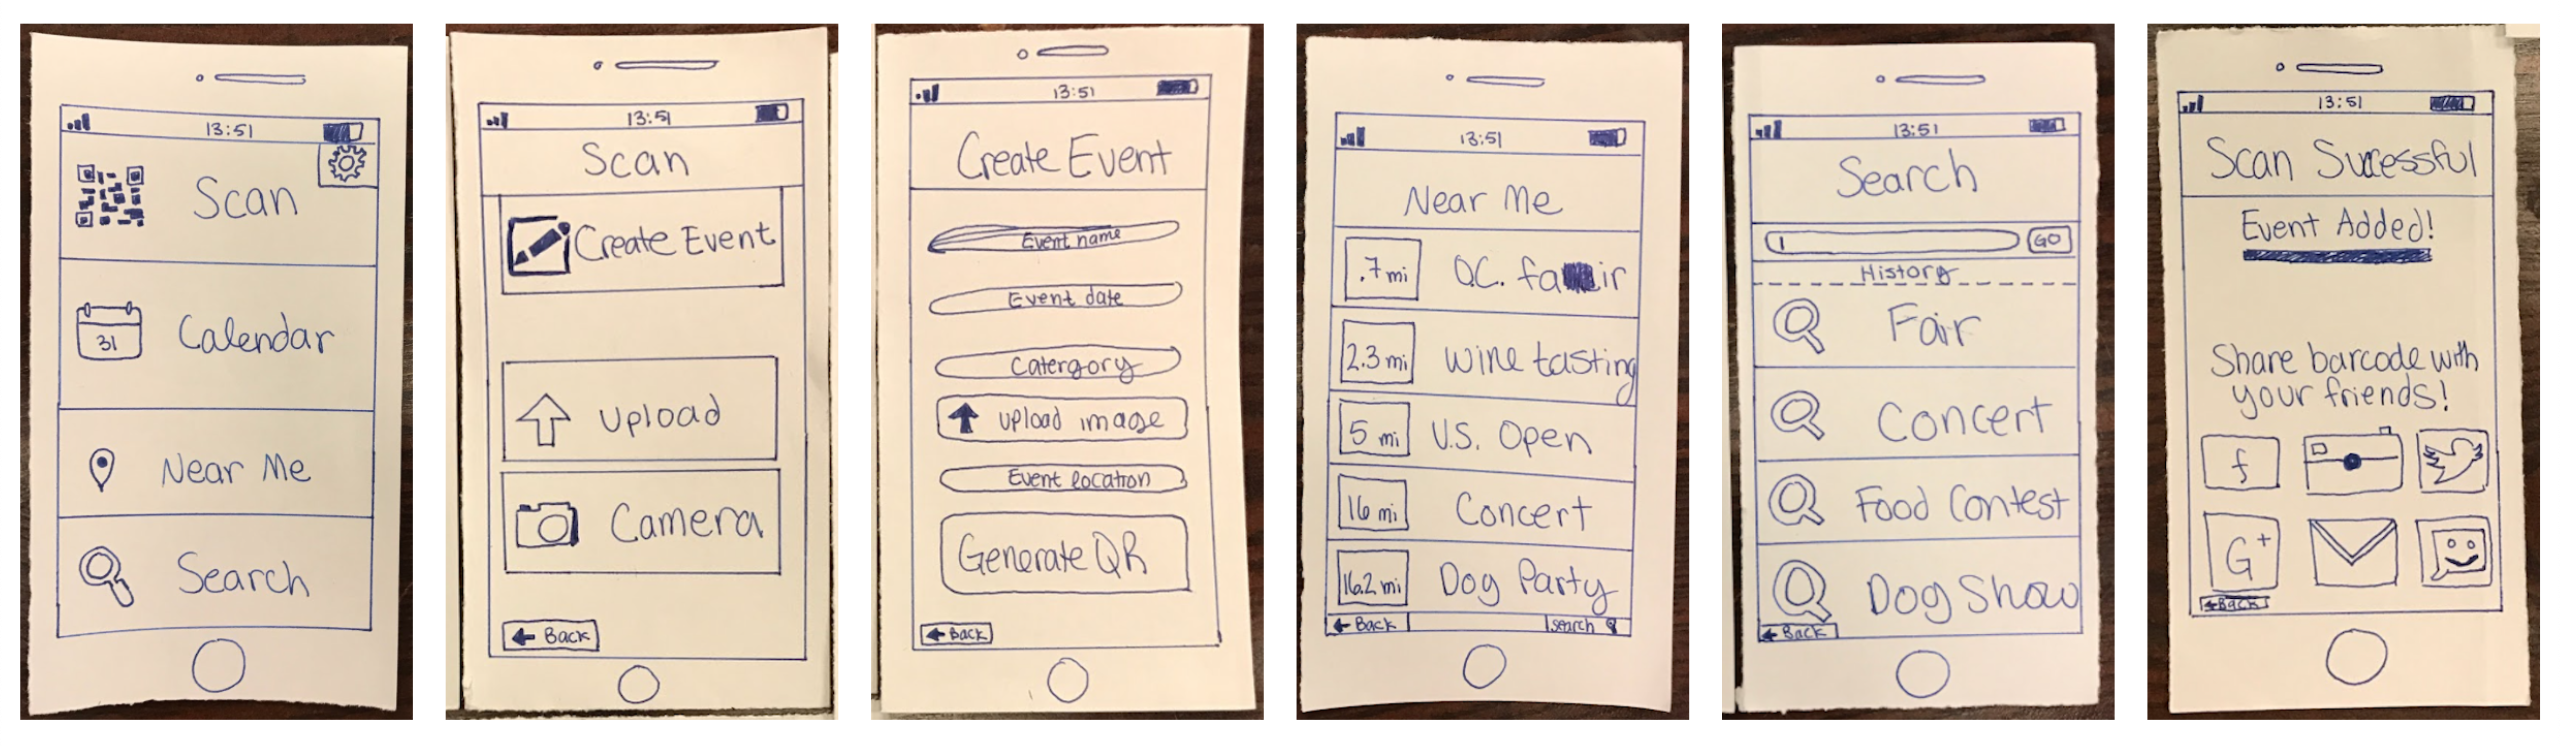 13:51
Scan
31
Calendar
Near Me
Search
13:51
Scan
Create Event
Upload
Camera
← Back
13:51
Create Event
Event name
Event date
Catergory
upload image
Event location
Generate QR
← Back
13:51
Near Me
.7 mi O.C. fair
2.3 mi wine tasting
5 mi U.S. Open
16 mi Concert
16.2 mi Dog Party
← Back search
13:51
Search
GO
History
Fair
Concert
Food Contest
Dog Show
← Back
13:51
Scan Sucessful
Event Added!
Share barcode with
your friends!
f
G+
← Back